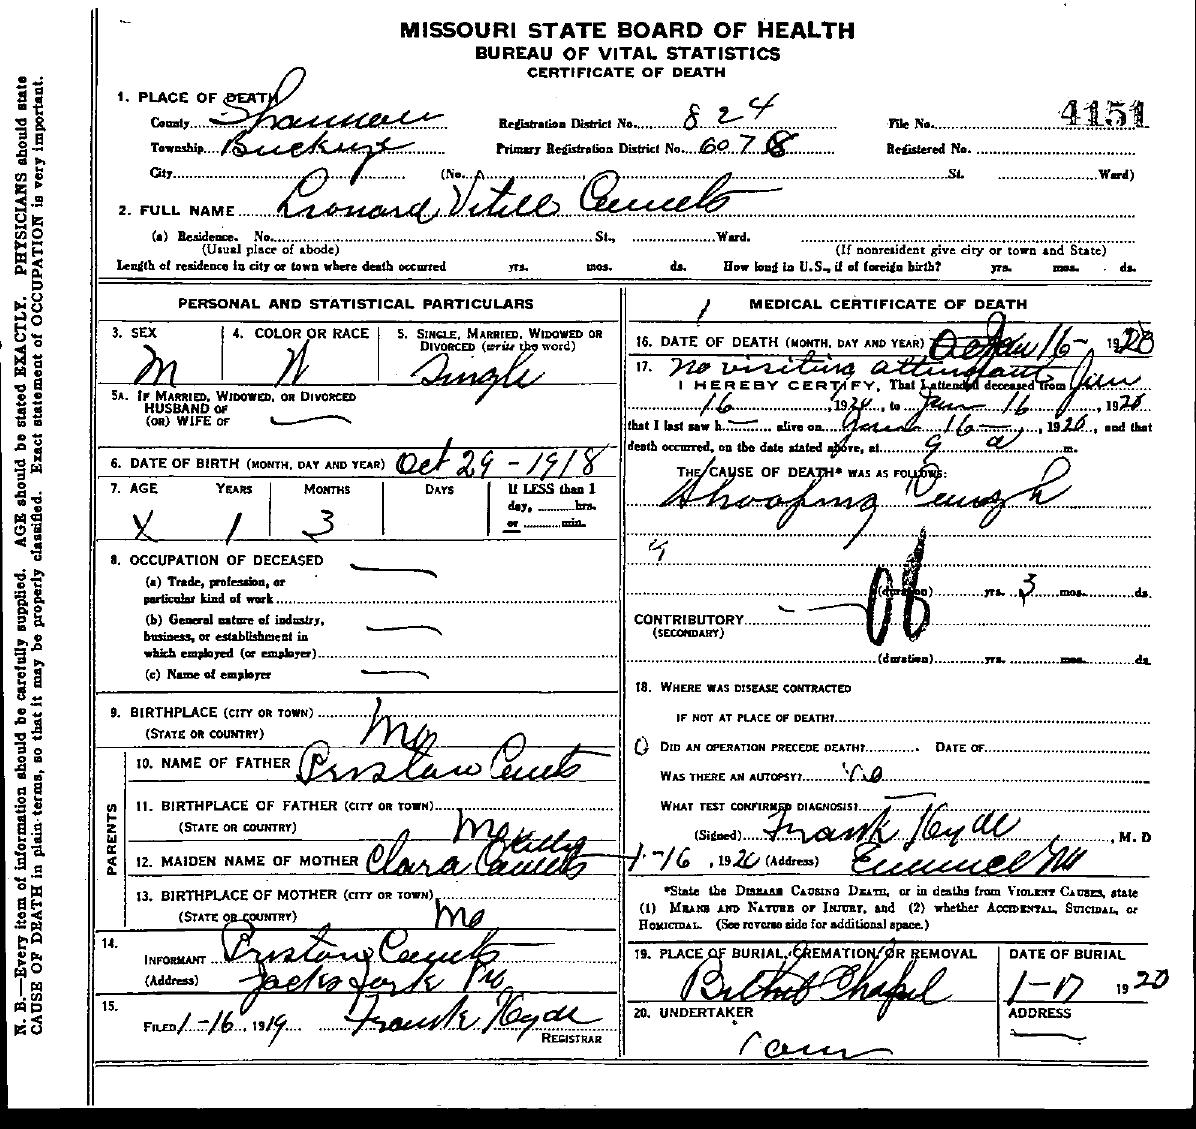 MISSOURI STATE BOARD OF HEALTH
BUREAU OF VITAL STATISTICS
CERTIFICATE OF DEATH
N. B.—Every item of information should be carefully supplied. AGE should be stated EXACTLY. PHYSICIANS should state
CAUSE OF DEATH in plain terms, so that it may be properly classified. Exact statement of OCCUPATION is very important.
1. PLACE OF DEATH
County Shannon Registration District No. 824 File No. 4151
Township Primary Registration District No. 6078 Registered No.
City (No. St. Ward)
2. FULL NAME Leonard
(a) Residence. No. St., Ward.
(Usual place of abode) (If nonresident give city or town and State)
Length of residence in city or town where death occurred yrs. mos. ds. How long in U.S., if of foreign birth? yrs. mos. ds.
PERSONAL AND STATISTICAL PARTICULARS
3. SEX 4. COLOR OR RACE 5. SINGLE, MARRIED, WIDOWED OR
DIVORCED (write the word)
M W Single
5A. IF MARRIED, WIDOWED, OR DIVORCED
HUSBAND OF
(OR) WIFE OF
6. DATE OF BIRTH (MONTH, DAY AND YEAR) Oct 29 - 1918
7. AGE YEARS MONTHS DAYS If LESS than 1
day, hrs.
or min.
X 1 3
8. OCCUPATION OF DECEASED
(a) Trade, profession, or
particular kind of work
(b) General nature of industry,
business, or establishment in
which employed (or employer)
(c) Name of employer
9. BIRTHPLACE (CITY OR TOWN)
(STATE OR COUNTRY) Mo
PARENTS
10. NAME OF FATHER
11. BIRTHPLACE OF FATHER (CITY OR TOWN)
(STATE OR COUNTRY) Mo
12. MAIDEN NAME OF MOTHER Clara
13. BIRTHPLACE OF MOTHER (CITY OR TOWN)
(STATE OR COUNTRY) Mo
14.
INFORMANT
(Address) Jacks Fork Mo
15.
FILED 1-16, 1919 Frank Hyde
REGISTRAR
MEDICAL CERTIFICATE OF DEATH
16. DATE OF DEATH (MONTH, DAY AND YEAR) Jan 16- 1920
17. No visiting attendant
I HEREBY CERTIFY, That I attended deceased from Jan
16, 1920, to Jan 16, 1920
that I last saw h alive on Jan 16, 1920, and that
death occurred, on the date stated above, at 9 a m.
THE CAUSE OF DEATH* WAS AS FOLLOWS:
Whooping Cough
9
(duration) yrs. 3 mos. ds.
CONTRIBUTORY
(SECONDARY)
(duration) yrs. mos. ds.
18. WHERE WAS DISEASE CONTRACTED
IF NOT AT PLACE OF DEATH?
DID AN OPERATION PRECEDE DEATH? DATE OF
WAS THERE AN AUTOPSY? no
WHAT TEST CONFIRMED DIAGNOSIS?
(Signed) Frank Hyde, M. D
1-16, 1920 (Address) Eminence Mo
*State the DISEASE CAUSING DEATH, or in deaths from VIOLENT CAUSES, state
(1) MEANS AND NATURE OF INJURY, and (2) whether ACCIDENTAL, SUICIDAL, or
HOMICIDAL. (See reverse side for additional space.)
19. PLACE OF BURIAL, CREMATION, OR REMOVAL DATE OF BURIAL
Chapel 1-17 1920
20. UNDERTAKER ADDRESS